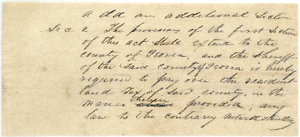 add an additional Section
Sec 2 The provisions of the first Section
of this act shall extend to the
county of Peoria, and the Sheriff
of the said county of Peoria is hereby
required to pay over the resident
land tax of said county, in the
manner therein provided; any
law to the contrary notwithstanding